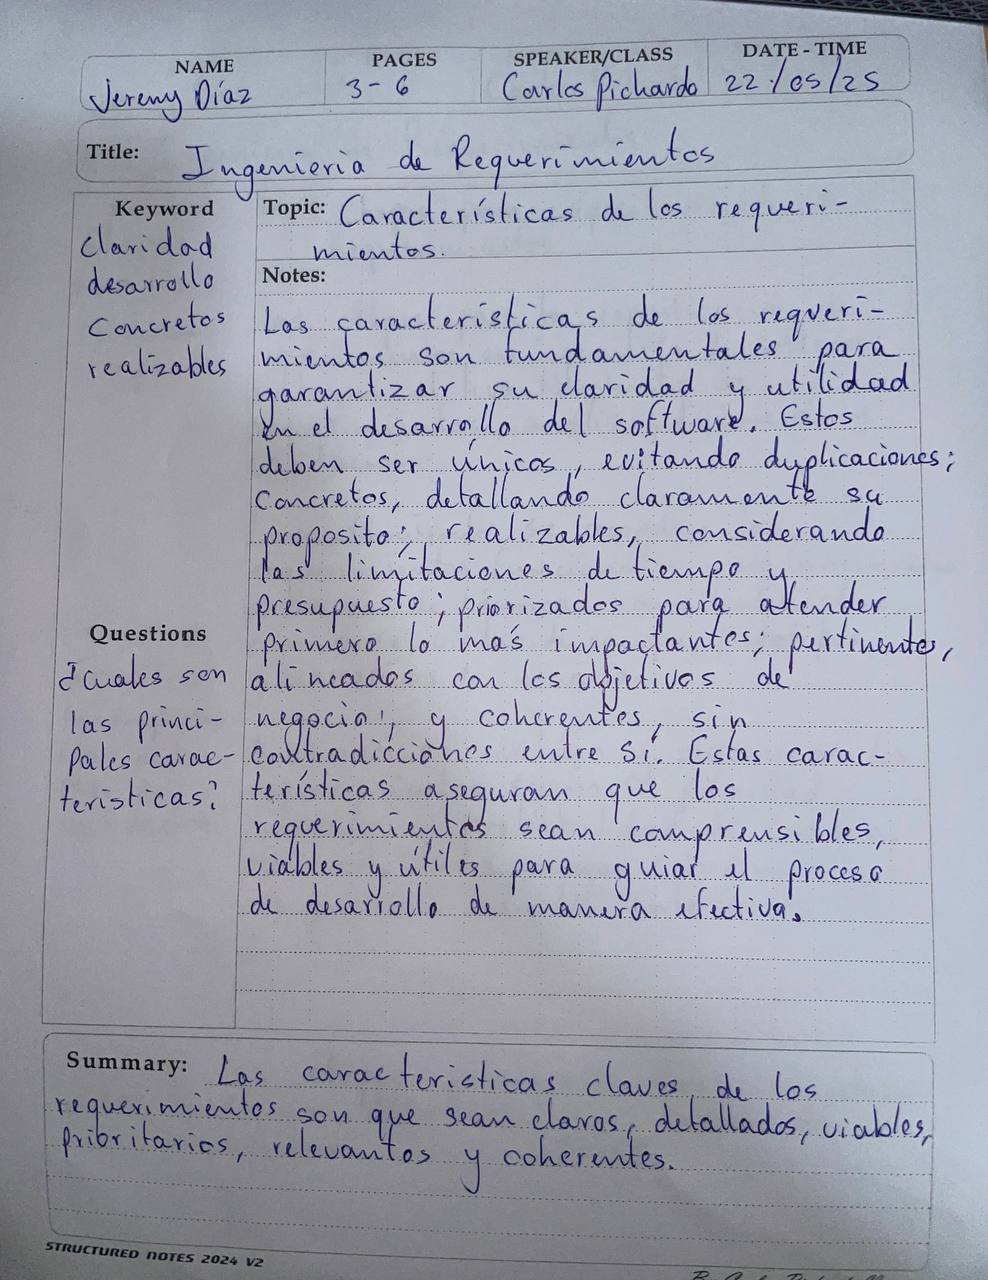 NAME PAGES SPEAKER/CLASS DATE - TIME
Jeremy Díaz 3-6 Carlos Pichardo 22/05/25
Title: Ingenieria de Requerimientos
Keyword
claridad
desarrollo
Concretos
realizables
Questions
¿Cuales son
las princi-
pales carac-
teristicas?
Topic: Características de los requeri-
mientos.
Notes:
Las características de los requeri-
mientos son fundamentales para
garantizar su claridad y utilidad
en el desarrollo del software. Estos
deben ser únicos, evitando duplicaciones;
concretos, detallando claramente su
proposito; realizables, considerando
las limitaciones de tiempo y
presupuesto; priorizados para atender
primero lo más impactantes; pertinentes,
alineados con los objetivos de
negocio; y coherentes, sin
contradicciones entre sí. Estas carac-
terísticas aseguran que los
requerimientos sean comprensibles,
viables y útiles para guiar el proceso
de desarrollo de manera efectiva.
Summary: Las caracteristicas claves de los
requerimientos son que sean claros, detallados, viables,
prioritarios, relevantes y coherentes.
STRUCTURED NOTES 2024 V2